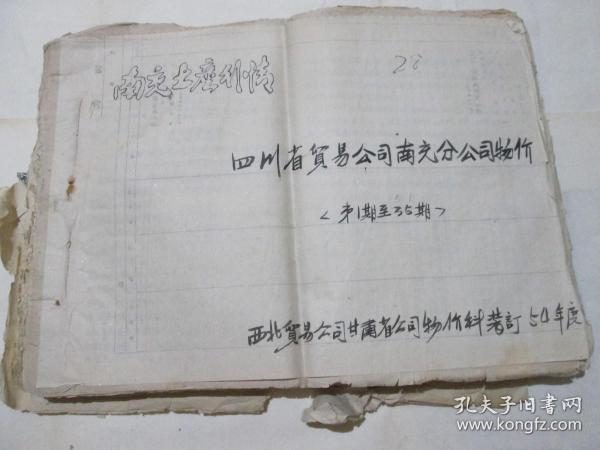 南充土产行情
28
四川省貿易公司南充分公司物价
<第1期至35期>
西北貿易公司甘肅省公司物价科装訂 50年度
孔夫子旧书网
www.kongfz.com